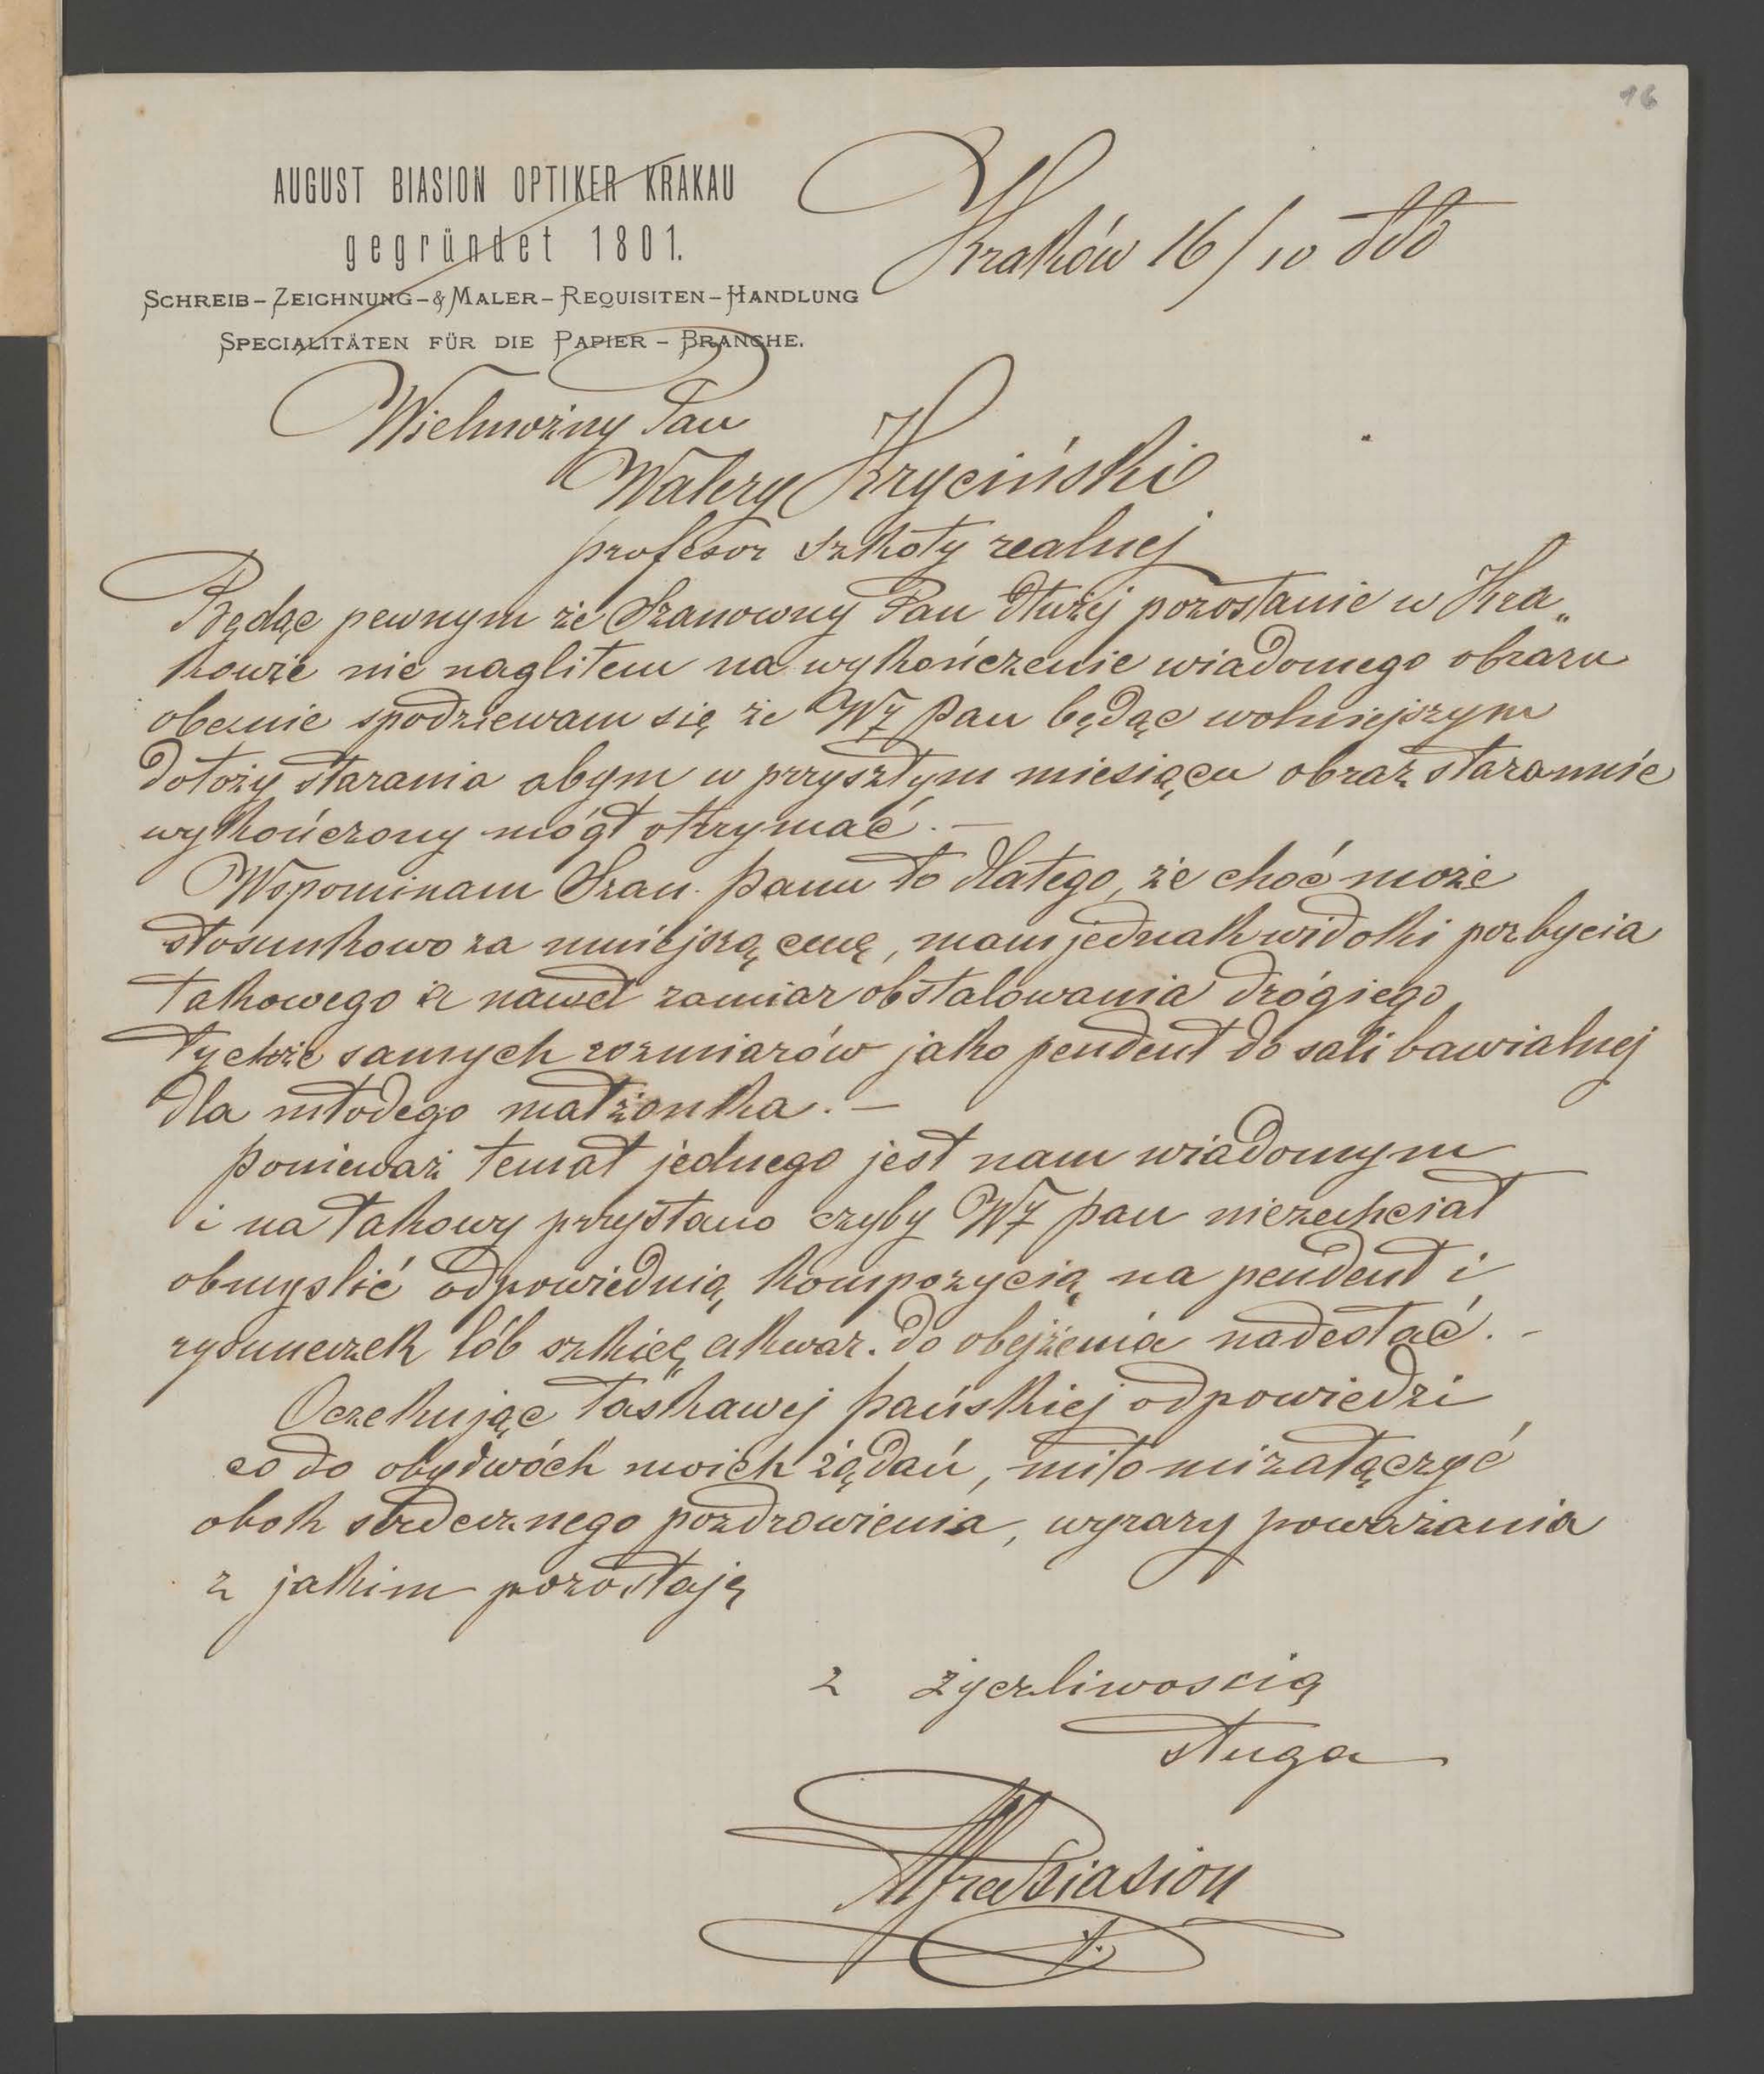 16
AUGUST BIASION OPTIKER KRAKAU
gegründet 1801.
SCHREIB-ZEICHNUNG-& MALER-REQUISITEN-HANDLUNG
SPECIALITÄTEN FÜR DIE PAPIER-BRANCHE.
Kraków 16/10
Wielmożny Pan
Walery Kryciński
profesor szkoły realnej
Będąc pewnym że Szanowny Pan dłużej pozostanie w Kra„
kowie nie nagliłem na wykończenie wiadomego obrazu
obecnie spodziewam się że WŻ Pan będąc wolniejszym
dołoży starania abym w przyszłym miesiącu obraz starannie
wykończony mógł otrzymać. —
Wspominam Szan. Panu to dlatego, że choć może
stosunkowo za mniejszą cenę, mam jednak widoki pozbycia
takowego a nawet zamiar obstalowania drógiego
tychże samych rozmiarów jako pendent do sali bawialnej
dla młodego małżonka. —
Ponieważ temat jednego jest nam wiadomym
i na takowy przystano czyby WŻ Pan niezechciał
obmyslić odpowiednią kompozycią na pendent i
rysuneczek lób szkic akwar. do obejżenia nadesłać. -
Oczekując łaskawej pańskiej odpowiedzi
co do obydwóch moich żądań, miło mi załączyć
obok serdecznego pozdrowienia, wyrazy poważania
z jakim pozostaję
z życzliwoscią
sługa
Alfred Biasion